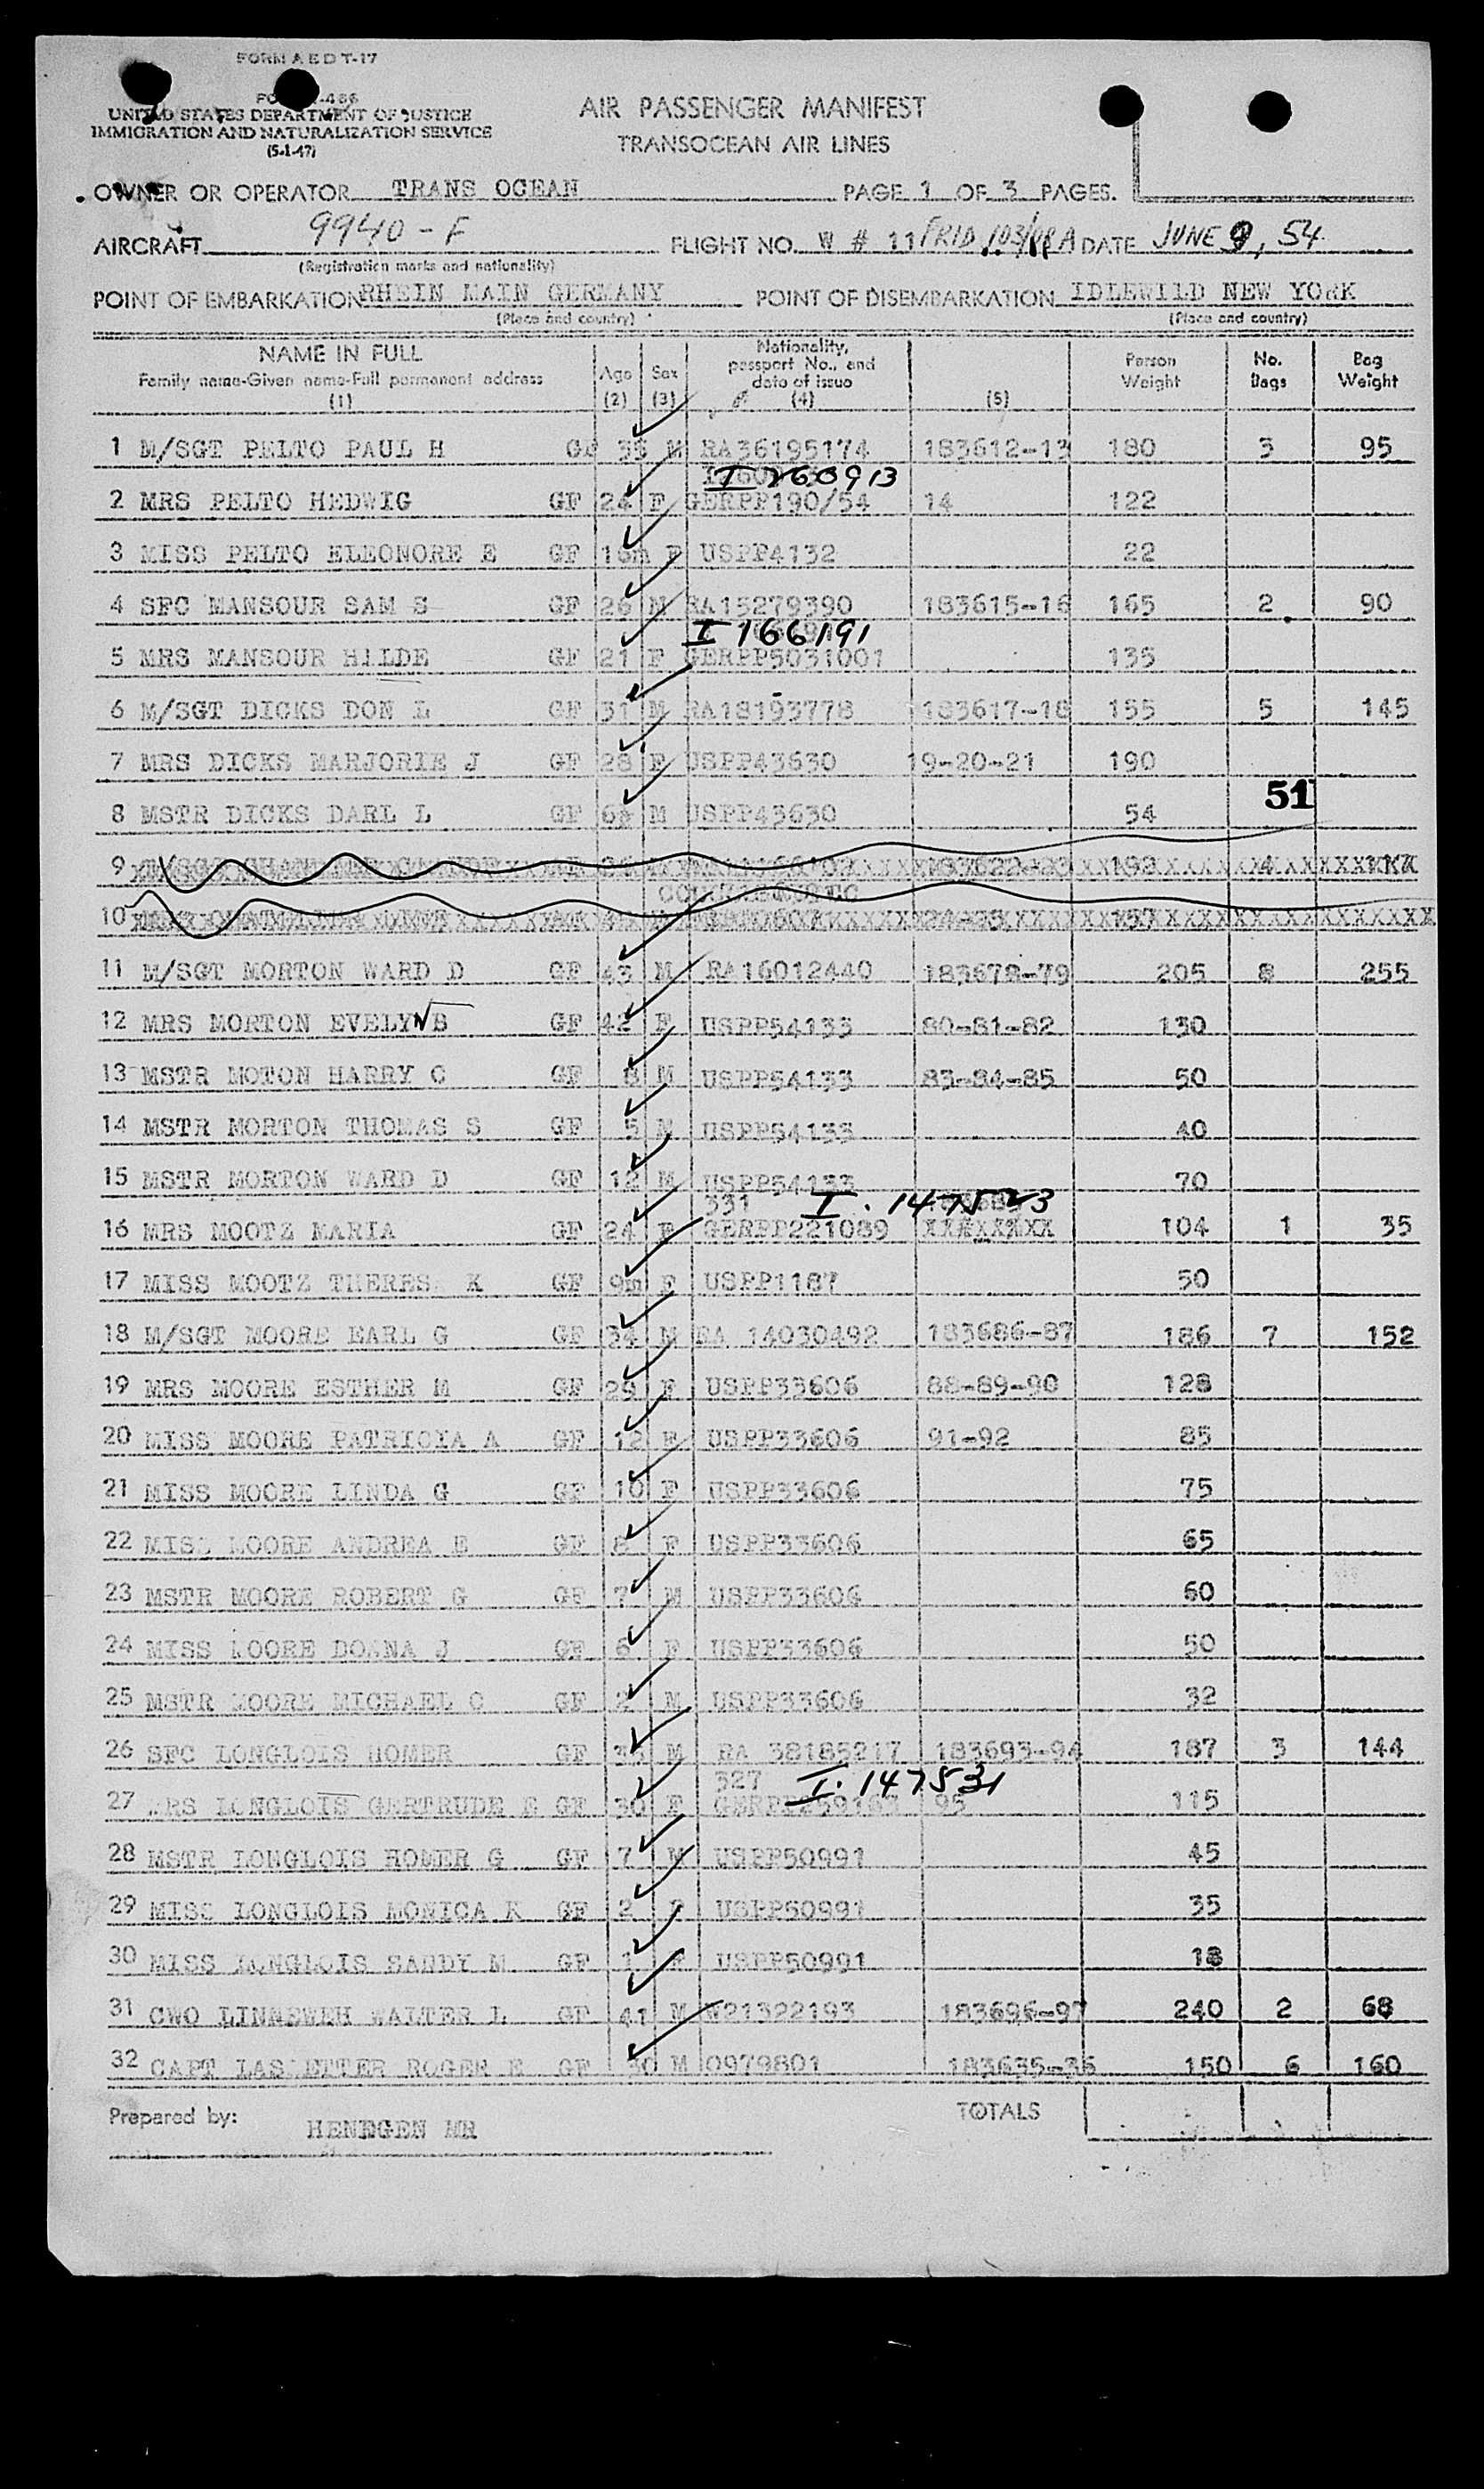 FORM A E D T-17
UNITED STATES DEPARTMENT OF JUSTICE
IMMIGRATION AND NATURALIZATION SERVICE
(5-1-47)
AIR PASSENGER MANIFEST
TRANSOCEAN AIR LINES
OWNER OR OPERATOR TRANS OCEAN PAGE 1 OF 3 PAGES.
AIRCRAFT 9940-F FLIGHT NO. W # 11 DATE JUNE 9, 54
(Registration marks and nationality)
POINT OF EMBARKATION RHEIN MAIN GERMANY POINT OF DISEMBARKATION IDLEWILD NEW YORK
(Place and country) (Place and country)
NAME IN FULL Family name-Given name-Full permanent address (1) Age (2) Sex (3) Nationality, passport No., and date of issue (4) (5) Person Weight No. Bags Bag Weight
1 M/SGT PELTO PAUL H M RA36195174 183612-13 180 3 95
I 260913
2 MRS PELTO HEDWIG GF 24 F GERPP190/54 14 122
3 MISS PELTO ELEONORE E GF F USPP4132 22
4 SFC MANSOUR SAM S GF 26 M RA15279390 183615-16 165 2 90
I 166191
5 MRS MANSOUR HILDE GF 21 F GERPP5031001 135
6 M/SGT DICKS DON L GF 31 M RA18193778 183617-18 155 5 145
7 MRS DICKS MARJORIE J GF 28 F USPP43630 19-20-21 190
51
8 MSTR DICKS DARL L GF M USPP43630 54
9
10
11 M/SGT MORTON WARD D GF 43 M RA16012440 183678-79 205 8 255
12 MRS MORTON EVELYN B GF 42 F USPP54133 80-81-82 130
13 MSTR MOTON HARRY C GF 8 M USPP54133 83-84-85 50
14 MSTR MORTON THOMAS S GF 5 M USPP54133 40
15 MSTR MORTON WARD D GF 12 M USPP54133 70
331 I. 147523
16 MRS MOOTZ MARIA GF 24 F GERPP221089 XXXXXXXX 104 1 35
17 MISS MOOTZ K GF 9m F USPP1187 50
18 M/SGT MOORE EARL G GF 34 M RA 14030492 183686-87 186 7 152
19 MRS MOORE ESTHER M GF 29 F USPP33606 88-89-90 128
20 MISS MOORE PATRICIA A GF 12 F USPP33606 91-92 85
21 MISS MOORE LINDA G GF 10 F USPP33606 75
22 MISS MOORE ANDREA E GF 8 F USPP33606 65
23 MSTR MOORE ROBERT G GF 7 M USPP33606 60
24 MISS MOORE DONNA J GF 6 F USPP33606 50
25 MSTR MOORE MICHAEL C GF 2 M USPP33606 32
26 SFC LONGLOIS HOMER GF M RA 38185217 183693-94 187 3 144
327 I. 147531
27 MRS LONGLOIS GERTRUDE E GF 30 F 95 115
28 MSTR LONGLOIS HOMER G GF 7 M USPP50991 45
29 MISS LONGLOIS MONICA R GF 2 F USPP50991 35
30 MISS LONGLOIS SANDY M GF 1 F USPP50991 18
31 CWO LINNEWEH WALTER L GF 41 M W21322193 183696-97 240 2 68
32 CAPT ROGER E GF 30 M 0979801 183635-36 150 6 160
Prepared by: HENEGEN MR TOTALS